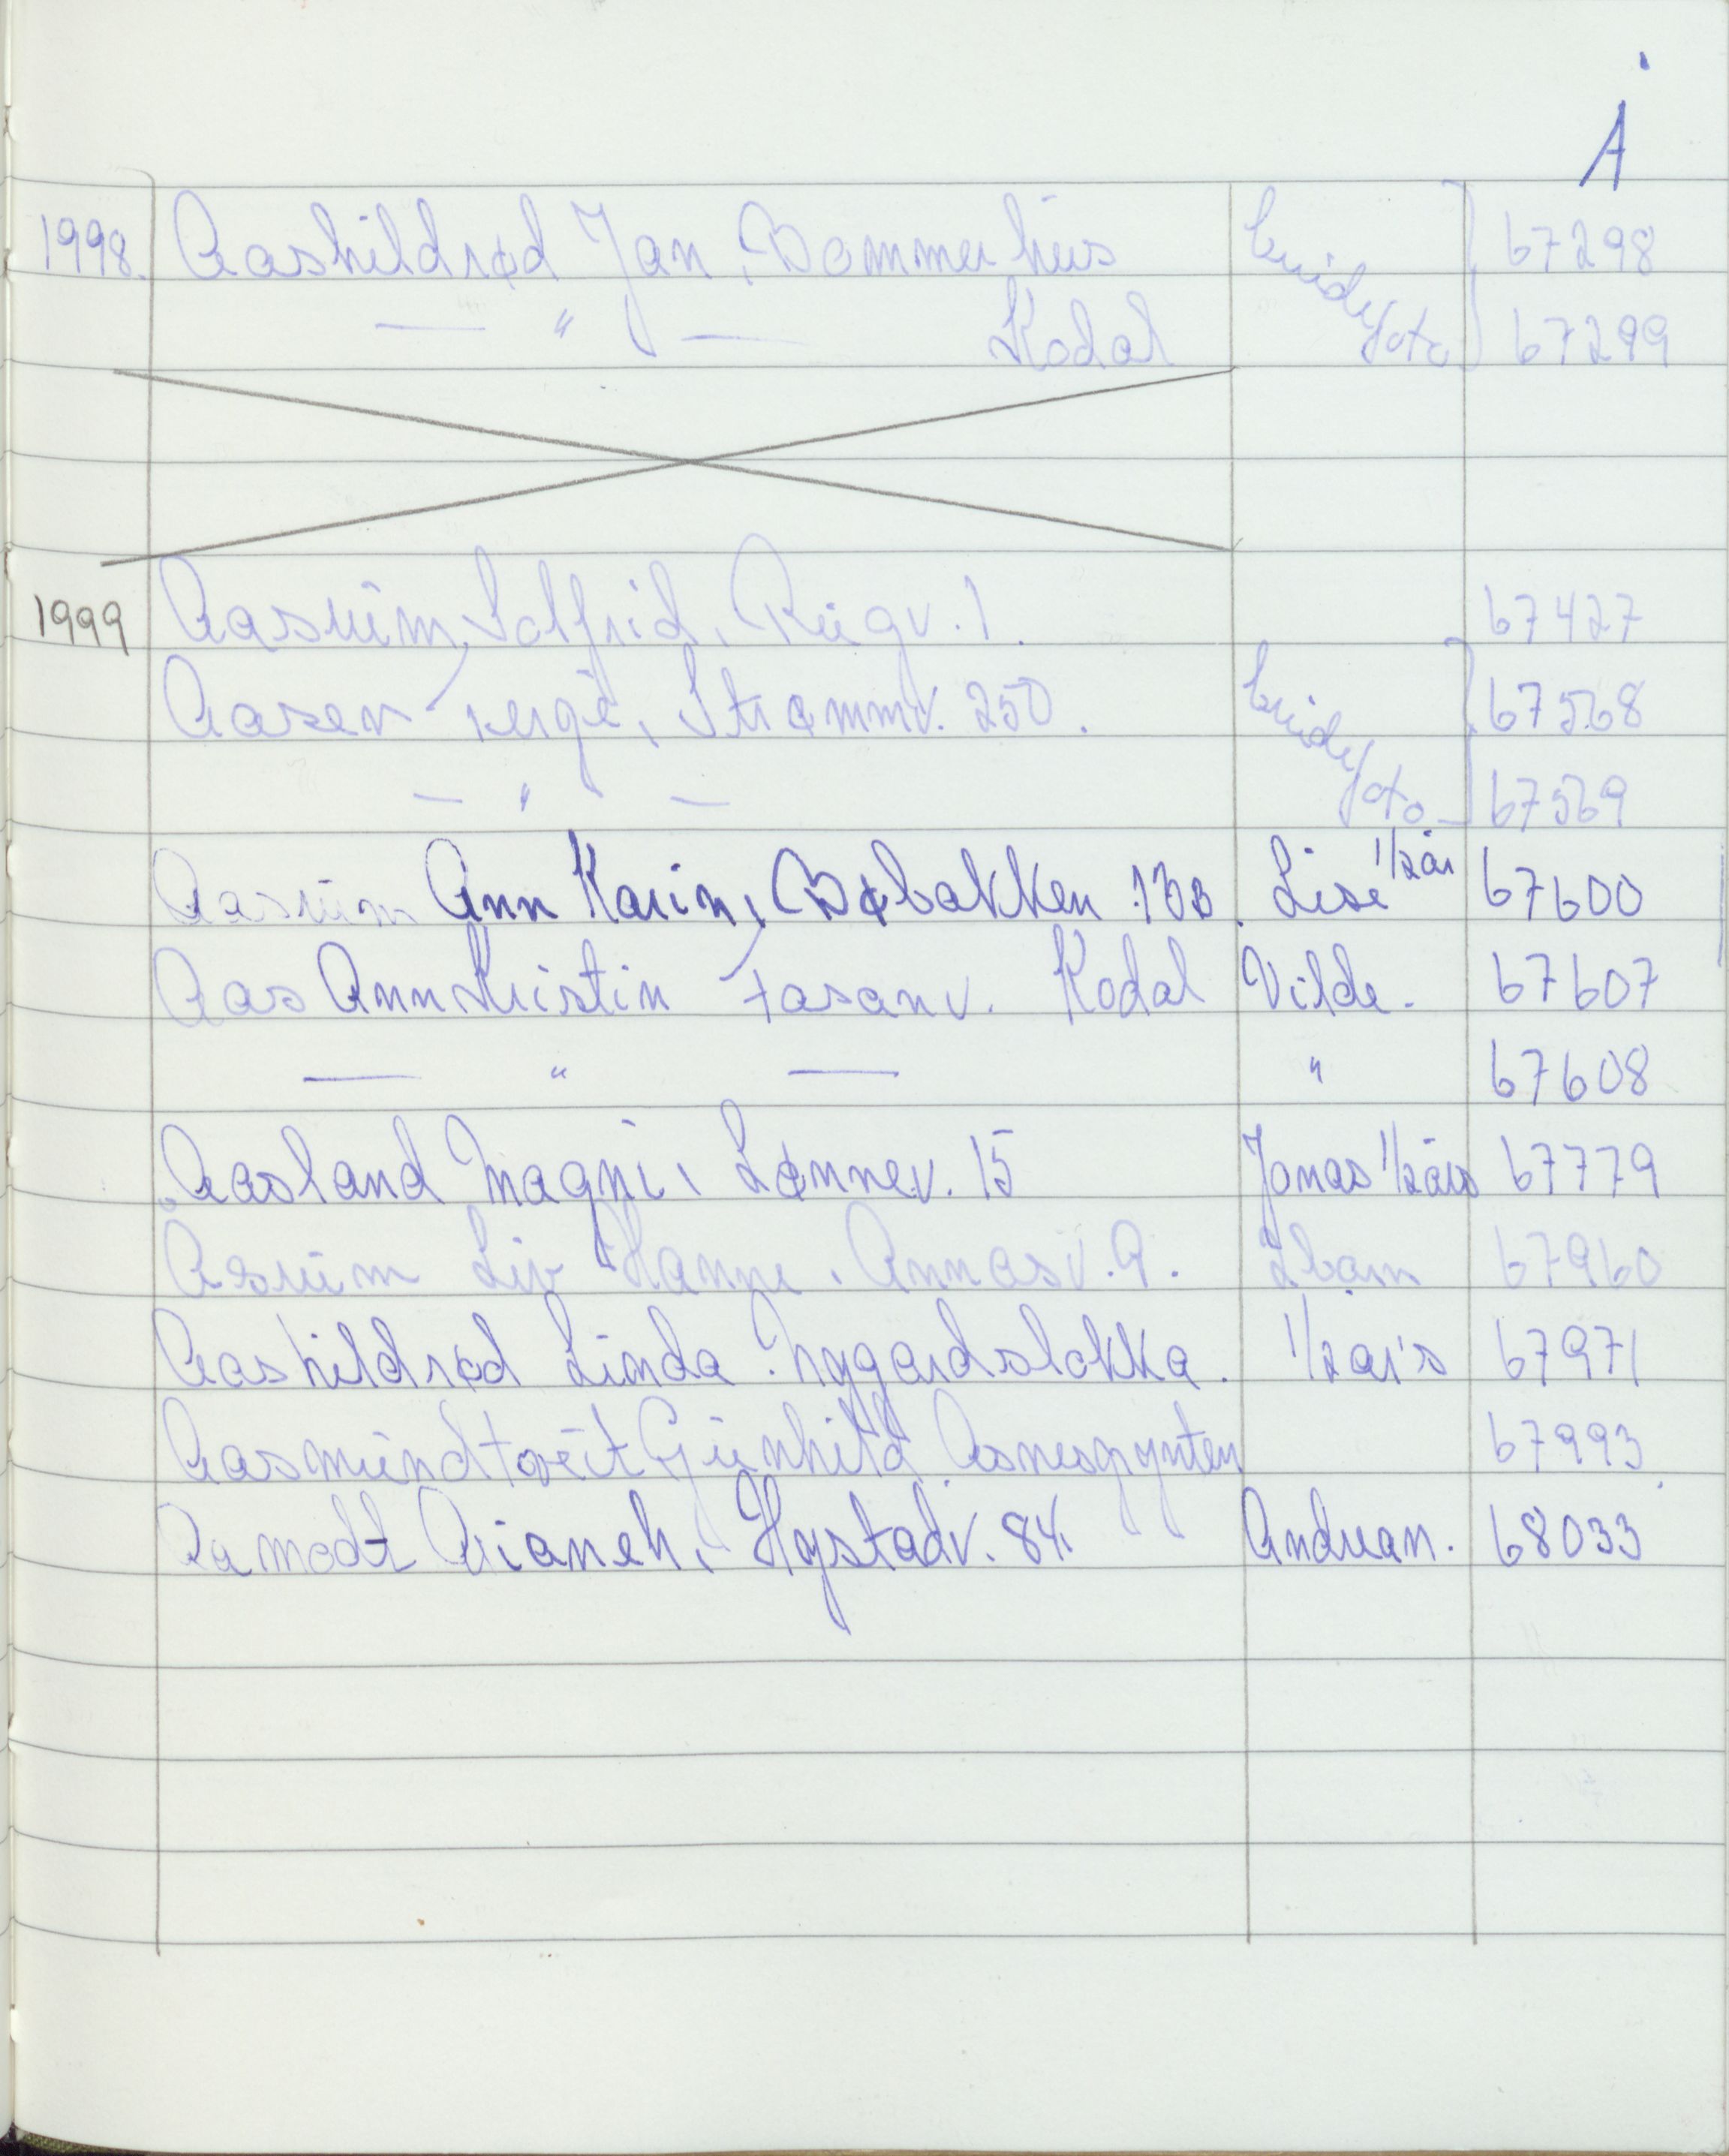 Å
1998. Aashildrød Jan, Bommerhus brudefoto 67298
— " — Kodal 67299
1999 Aasrum, Solfrid, Rugv. 1. 67427
Aasen Terje, Strømmv. 250. brudefoto 67568
— " — 67569
Aasrum Ann Karin, Bøbakken 13B. Lise 1/2 år 67600
Aas Ann Kristin Fasanv. Kodal Vilde. 67607
— " — " 67608
Aasland Magni, Lønnev. 15 Jonas 1/2 års 67779
Åsrum Liv Hanne. Annasv. 9. 2 barn 67960
Aashildrød Linda. Nygårdsløkka. 1/2 år's 67971
Aasmundtveit Gunhild Asnespynten 67993
Aamodt Hystadv. 84. Andrean. 68033